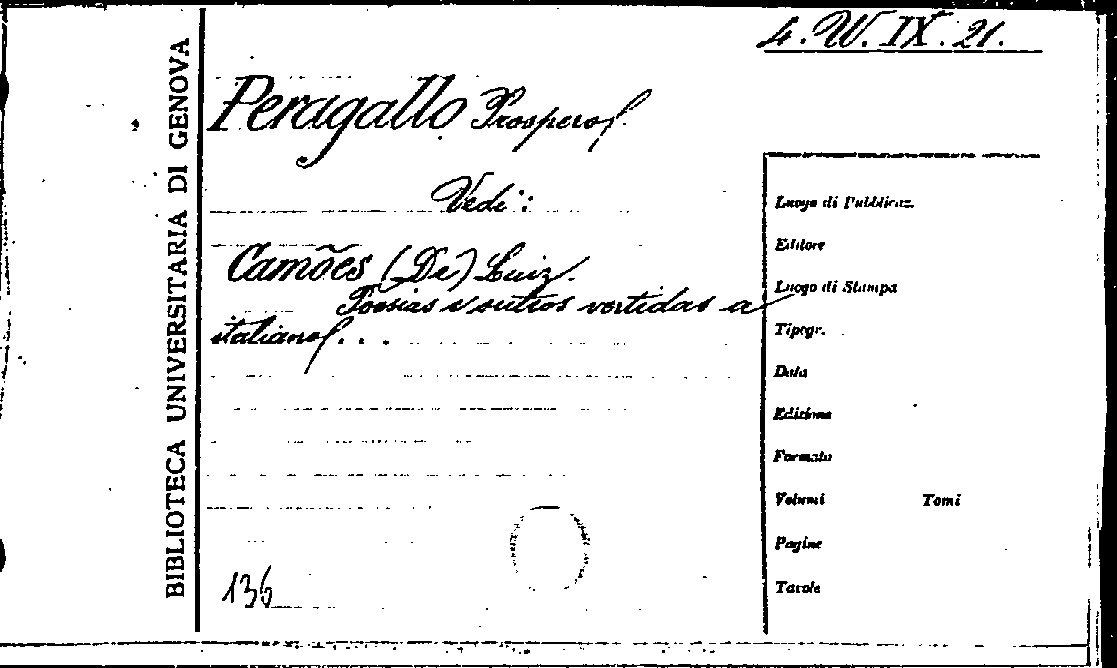 4. W. IX. 21.
BIBLIOTECA UNIVERSITARIA DI GENOVA
Peragallo Prospero
Vedi:
Camões (De) Luiz.
Poesias e outros vertidas a
italiano...
136
Luogo di Pubblicaz.
Editore
Luogo di Stampa
Tipogr.
Data
Edizione
Formato
Volumi Tomi
Pagine
Tavole